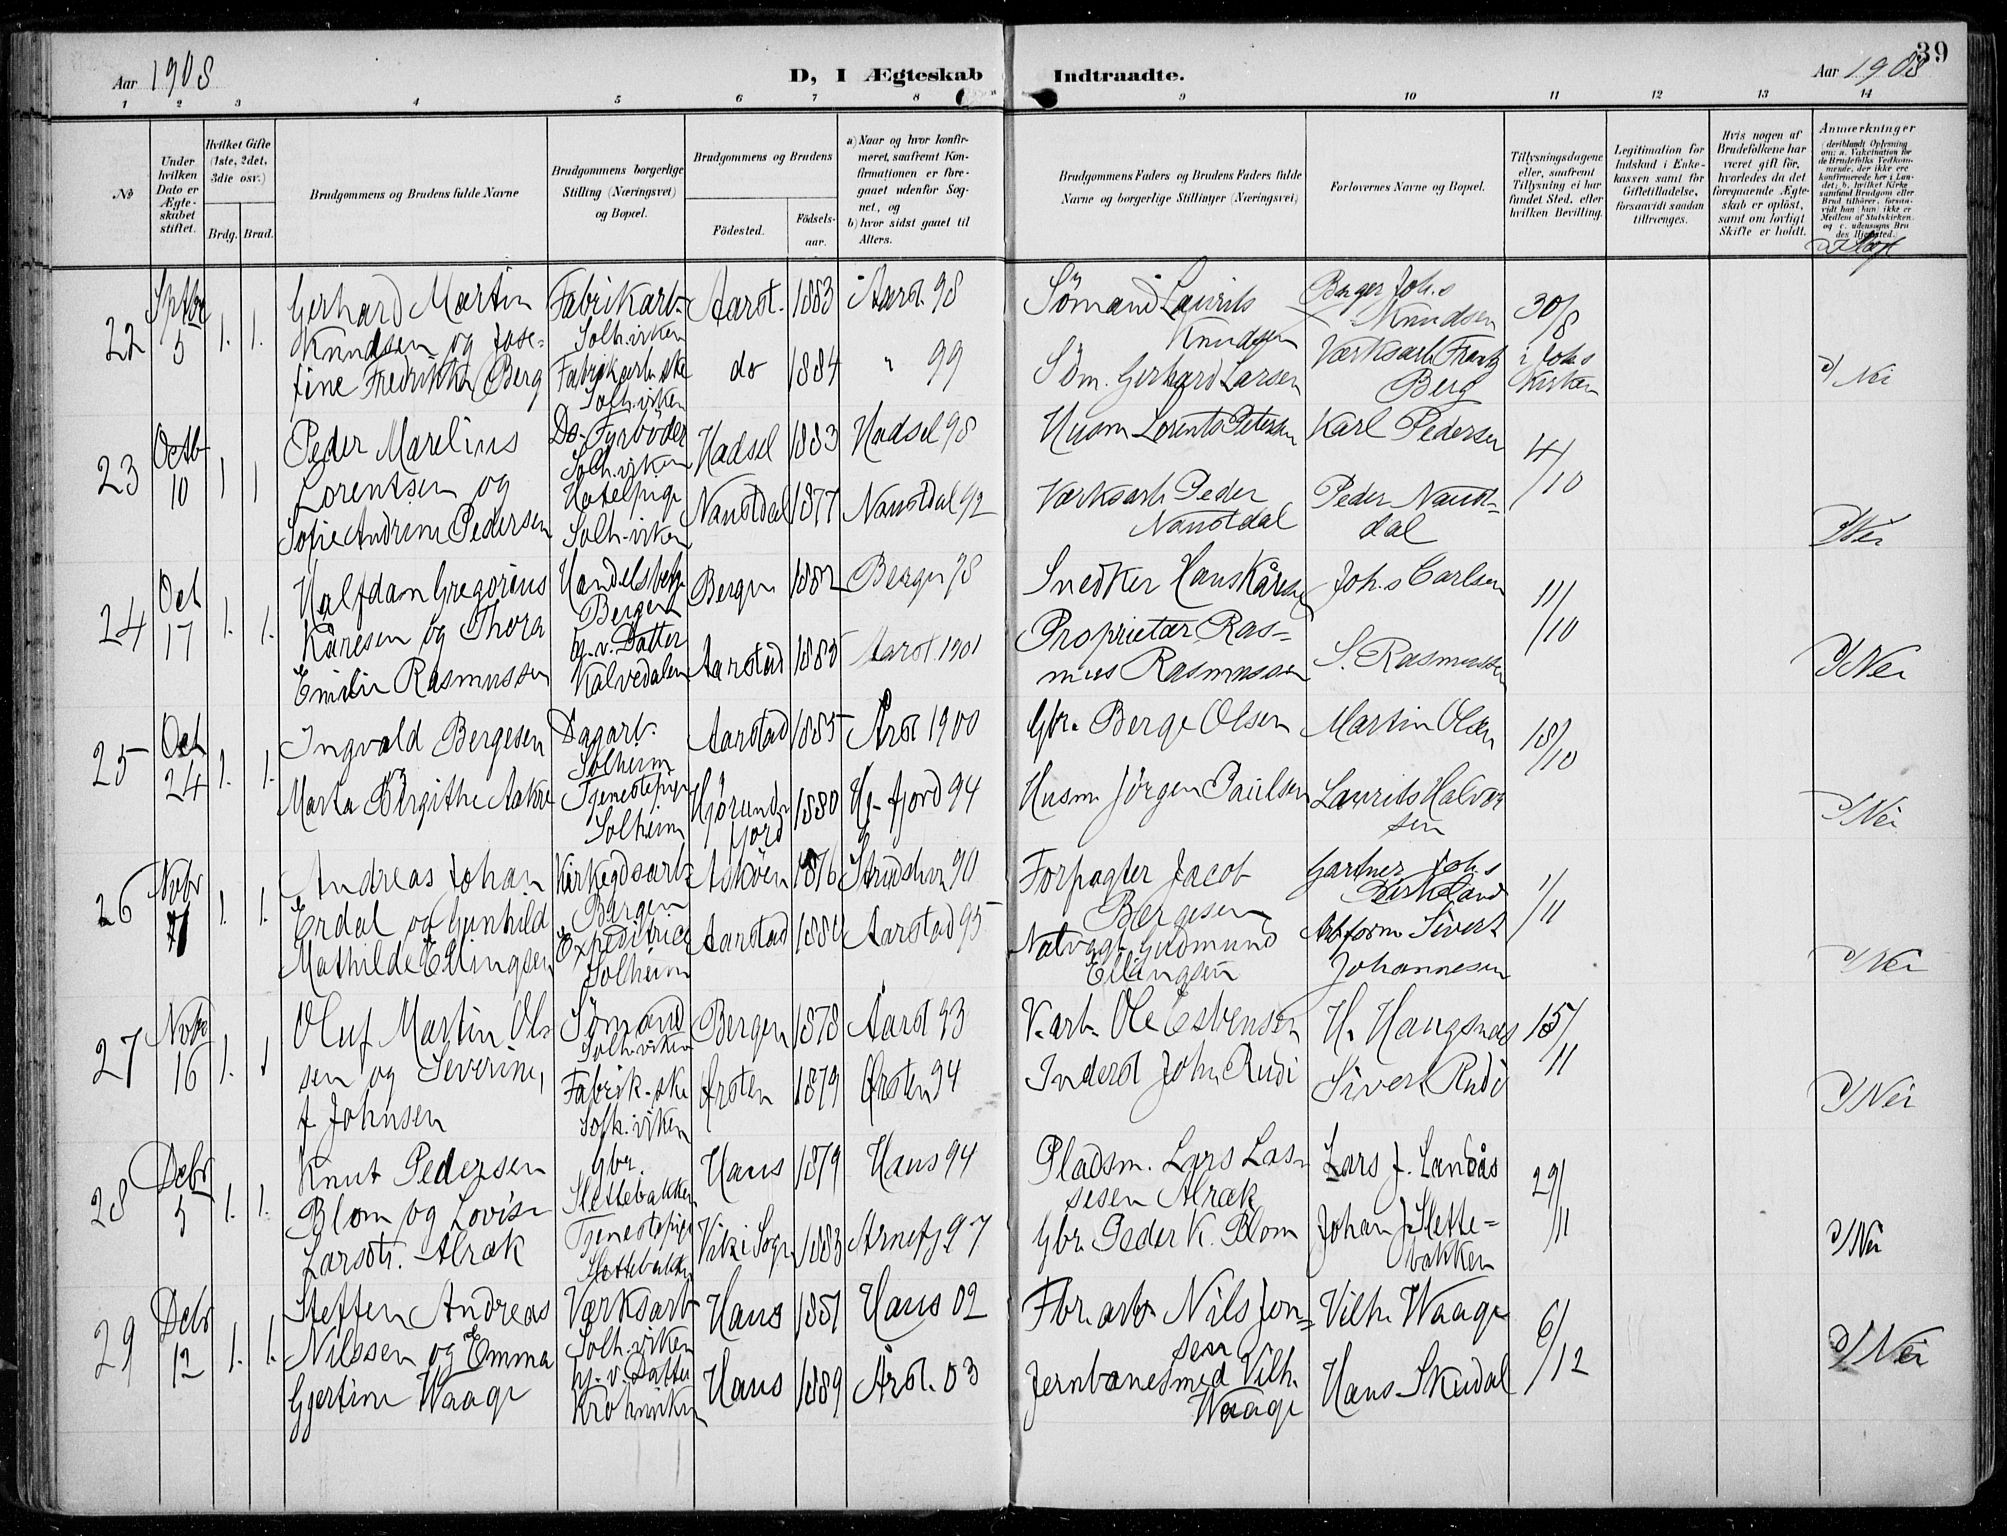 Aar 1908
D, I Ægteskab Indtraadte.
Aar 1908
39
1 2 3 4 5 6 7 8 9 10 11 12 13 14
No
Under hvilken Dato er Ægteskabet stiftet.
Hvilket Gifte (1ste, 2det, 3die osv.)
Brdg. Brud.
Brudgommens og Brudens fulde Navne
Brudgommens borgerlige Stilling (Næringsvei) og Bopæl.
Brudgommens og Brudens
Fødested.
Fødselsaar.
a) Naar og hvor konfirmeret, saafremt Konfirmationen er foregaaet udenfor Sognet, og
b) hvor sidst gaaet til Alters.
Brudgommens Faders og Brudens Faders fulde Navne og borgerlige Stillinger (Næringsvei)
Forlovernes Navne og Bopæl.
Tillysningsdagene eller, saafremt Tillysning ei har fundet Sted, efter hvilken Bevilling.
Legitimation for Indskud i Enkekassen samt for Giftetilladelse, forsaavidt saadan tiltrænges.
Hvis nogen af Brudefolkene har været gift før, hvorledes da det foregaaende Ægteskab er opløst, samt om lovligt Skifte er holdt.
Anmærkninger
22 Sptbr 5 1. 1.
Gerhard Martin
Knudsen og Jose-
fine Fredrikke Berg
Fabrikarb.
Solh.viken
Fabrikarb.ske
Solh.viken
Aarst. 1883 Aarst. 98
do 1884 " 99
Sömand Laurits
Knudsen
Söm. Gerhard Larsen
Johs
Knudsen
Værksarb. Frantz
Berg
30/8
i Johs
Kirken
Nei
23 Octb 10 1 1
Peder Marelius
Lorentsen og
Sofie Andrine Pedersen
Do. Fyrböder
Solh.viken
Hotelpige
Solh.viken
Hadsel 1883 Hadsel 98
Naustdal 1877 Naustdal 92
Husm Lorents Petersen
Værksarb Peder
Naustdal
Karl Pedersen
Peder Naust-
dal
4/10
Nei
24 Oct 17 1. 1.
Halfdan Gregorius
Kåresen og Thora
Emilie Rasmussen
Bergen
hj.v. Datter
Kalvedalen
Bergen 1882 Bergen 98
Aarstad 1885 Aarst. 1901
Snedker Hans Kåresen
Proprietær Ras-
mus Rasmussen
Johs Carlsen
S. Rasmussen
11/10
Nei
25 Oct 24 1. 1.
Ingvald Bergesen
Marta Birgithe Aakre
Dagarb.
Solheim
Tjenestepige
Solheim
Aarstad 1885 Årst 1900
Hjörund-
fjord 1880 Hj-fjord 94
Gbr. Berge Olsen
Husm Jörgen Paulsen
Martin Olsen
Laurits Halvor
sen
18/10
Nei
26 Novbr 1. 1.
Andreas Johan
Erdal og Gunhild
Mathilde Ellingsen
Kirkegdsarb.
Bergen
Expeditrice
Solheim
Askøen 1876 90
Aarstad Aarstad 95
Forpagter Jacob
Bergesen
Natvagt Gudmund
Ellingsen
Gartner Johs
Birkeland
Arbform Sivert
Johannesen
1/11
Nei
27 Novbr 16 1. 1
Oluf Martin Ol-
sen og Severine,
f Johnsen
Sömand
Solh.viken
Fabrik-ske
Solh.viken
Bergen 1878 Aarst 93
Ørsten 1879 Ørsten 94
V.arb. Ole Esbensen
Inderst John Rudi
H. Haugsnæs
Sivert Rudi
15/11
Nei
28 Decbr 5 1. 1.
Knut Pedersen
Blom og Lovise
Larsdtr. Alræk
Gbr.
Slettebakken
Tjenestepige
Slettebakken
Haus 1879 Haus 94
Vik i Sogn 1883 Arne 97
Pladsm. Lars Las-
sesen Alræk
Gbr. Peder K. Blom
Lars J. Landås
Johan J Slette-
bakken
29/11
Nei
29 Decbr 12 1. 1.
Steffen Andreas
Nilssen og Emma
Gjertine Waage
Værksarb
Solh.viken
hj.v. Datter
Krohnviken
Haus Haus 02
Haus 1889 Årst. 03
Fbr.arb. Nils Jon-
sen
Jernbanesmed Vilh.
Waage
Vilh. Waage
Hans Skudal
6/12
Nei